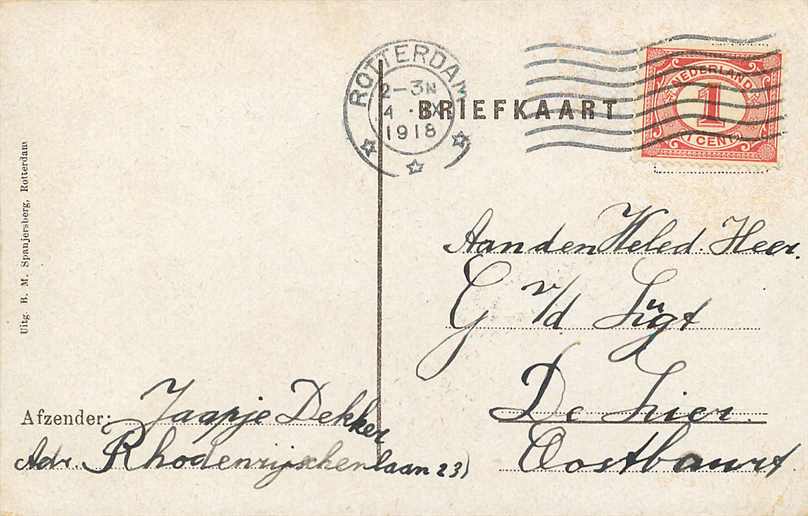 ROTTERDAM
2-3N
4 .IX
1918
BRIEFKAART
NEDERLAND
1
1 CENT
Aan den Weled. Heer.
G v/d Lugt
De Lier.
Oostbuurt.
Afzender: Jaapje Dekker
Adr. Rhodenrijschenlaan 23)
Uitg. B. M. Spanjersberg, Rotterdam